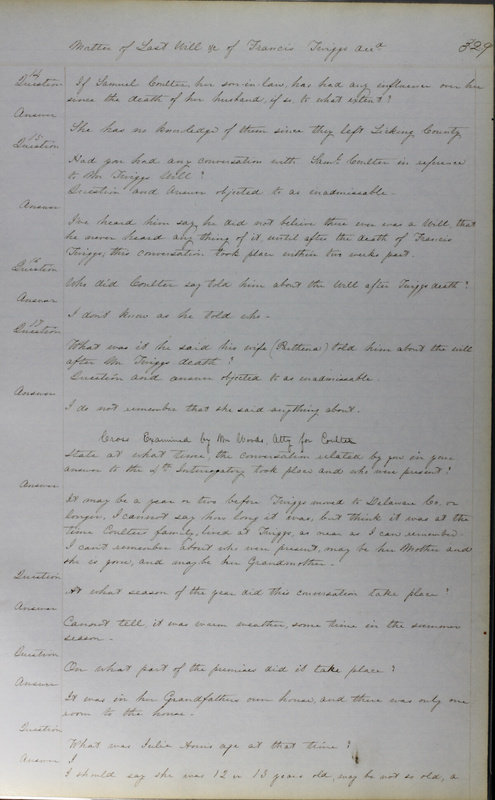 Matter of Last Will &c of Francis Twiggs decd
329
Question 14
If Samuel Coulter, her son-in-law, has had any influence over her
since the death of her husband, if so, to what extent?
Answer
She has no knowledge of them since they left Licking County
Question 15
Had you had any conversation with Saml Coulter in reference
to Mr Twiggs Will?
Question and Answer objected to as inadmissable -
Answer
I've heard him say, he did not believe there ever was a Will, that
he never heard any thing of it, until after the death of Francis
Twiggs; this conversation took place within two weeks past.
Question 16
Who did Coulter say told him about the Will after Twiggs death?
Answer
I don't know as he told who -
Question 17
What was it he said his wife (Ruthena) told him about the will
after Mr Twiggs death?
Question and answer objected to as inadmissable -
Answer
I do not remember that she said anything about -
Cross Examined by Mr Woods, Atty for Coulter
State at what time, the conversation related by you in your
answer to the 4th Interrogatory took place and who were present?
Answer
It may be a year or two before Twiggs moved to Delaware Co, or
longer, I cannot say how long it was, but think it was at the
time Coulters family lived at Twiggs, as near as I can remember.
I can't remember about who were present, may be her Mother and
she is gone, and maybe her Grandmother -
Question
At what season of the year did this conversation take place?
Answer
Cannot tell, it was warm weather, some time in the summer
season -
Question
On what part of the premises did it take place?
Answer
It was in her Grandfathers own house, and there was only one
room to the house -
Question
What was Julia age at that time?
Answer
I
I should say she was 12 or 13 years old, may be not so old, a